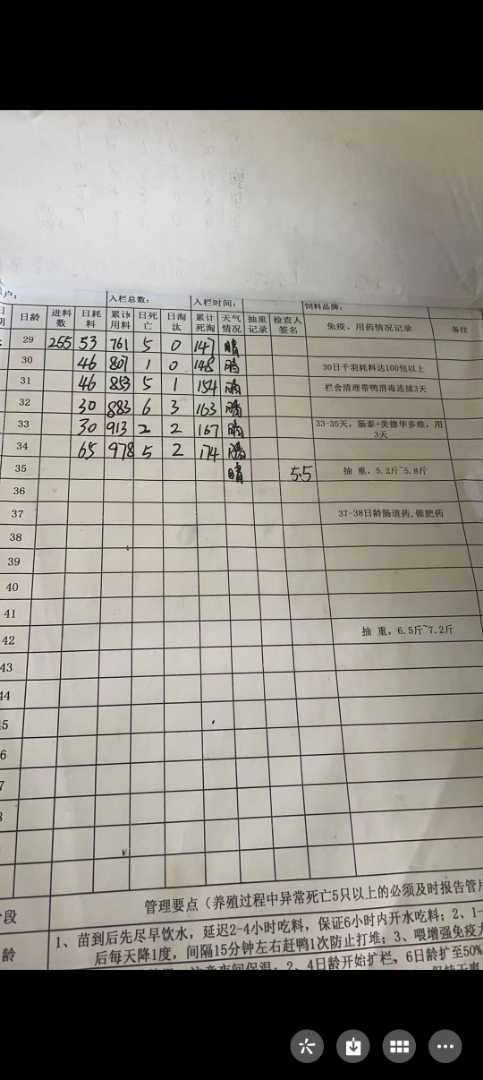 入栏总数： 入栏时间： 饲料品牌：
日龄 进料数 日耗料 累计用料 日死亡 日淘汰 累计死淘 天气情况 抽重记录 检查人签名 免疫、用药情况记录 备注
29 255 53 761 5 0 147 晴
30 46 807 1 0 148 30日千羽耗料达100包以上
31 46 853 5 1 154 栏舍清理带鸭消毒连续3天
32 30 883 6 3 163
33 30 913 2 2 167 33-35天，肠泰+美德华多维，用3天
34 65 978 5 2 174
35 晴 5.5 抽 重，5.2斤~5.8斤
36
37 37-38日龄肠道药，催肥药
38
39
40
41
42 抽 重，6.5斤~7.2斤
43
44
管理要点（养殖过程中异常死亡5只以上的必须及时报告管
1、苗到后先尽早饮水，延迟2-4小时吃料，保证6小时内开水吃料；2、1-
后每天降1度，间隔15分钟左右赶鸭1次防止打堆；3、喂增强免疫
2、4日龄开始扩栏，6日龄扩至50%